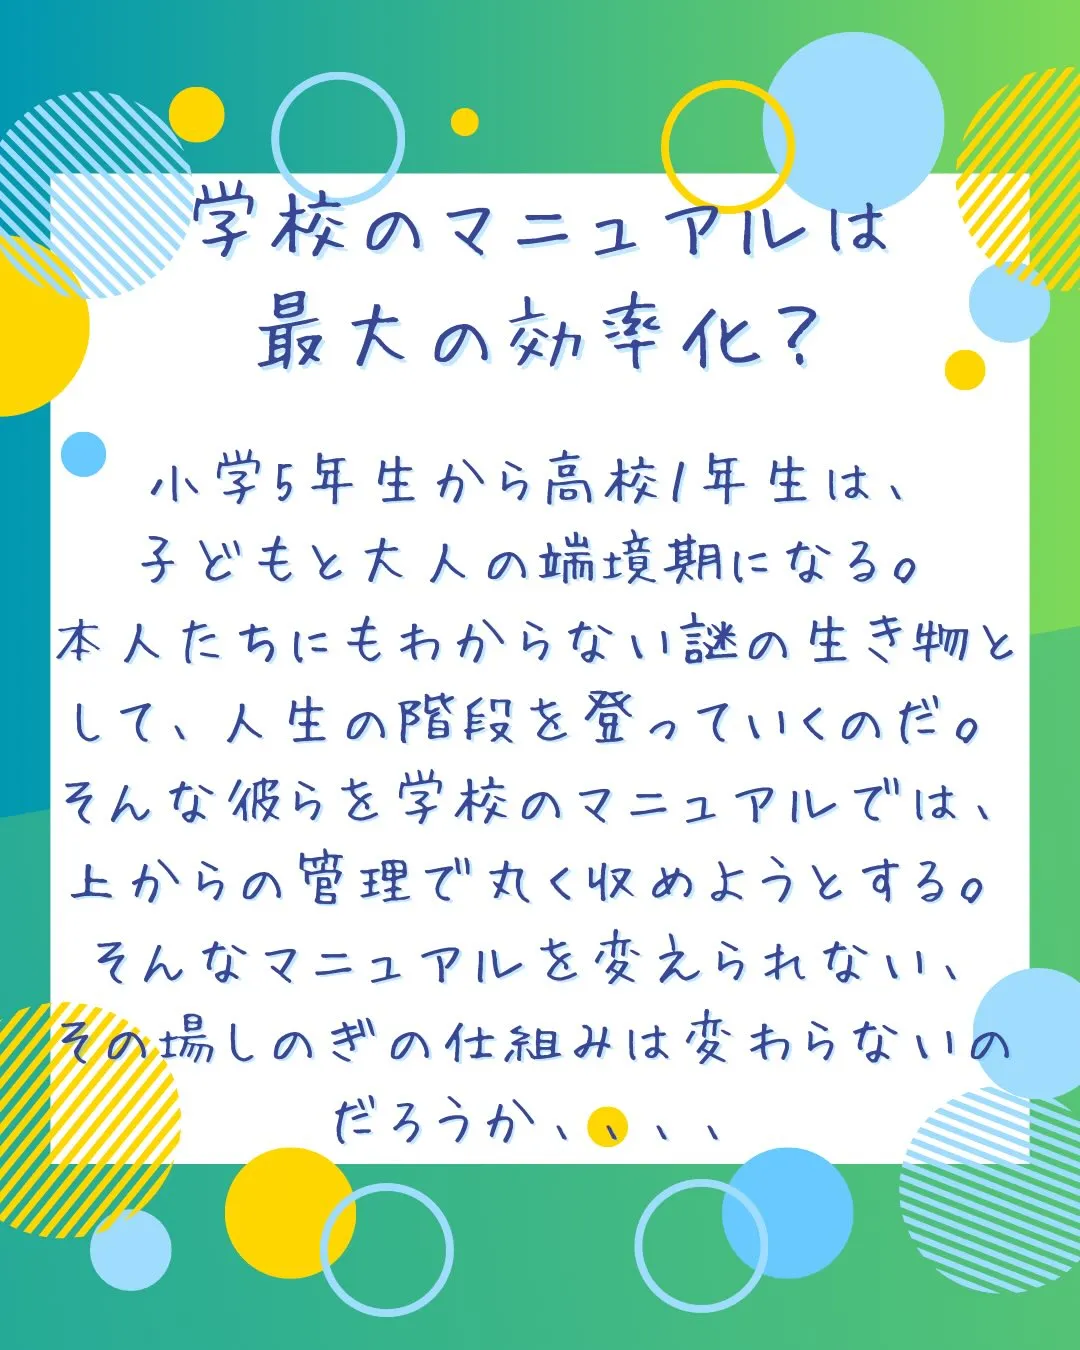 学校のマニュアルは
最大の効率化？
小学5年生から高校1年生は、
子どもと大人の端境期になる。
本人たちにもわからない謎の生き物と
して、人生の階段を登っていくのだ。
そんな彼らを学校のマニュアルでは、
上からの管理で丸く収めようとする。
そんなマニュアルを変えられない、
その場しのぎの仕組みは変わらないの
だろうか、、、、